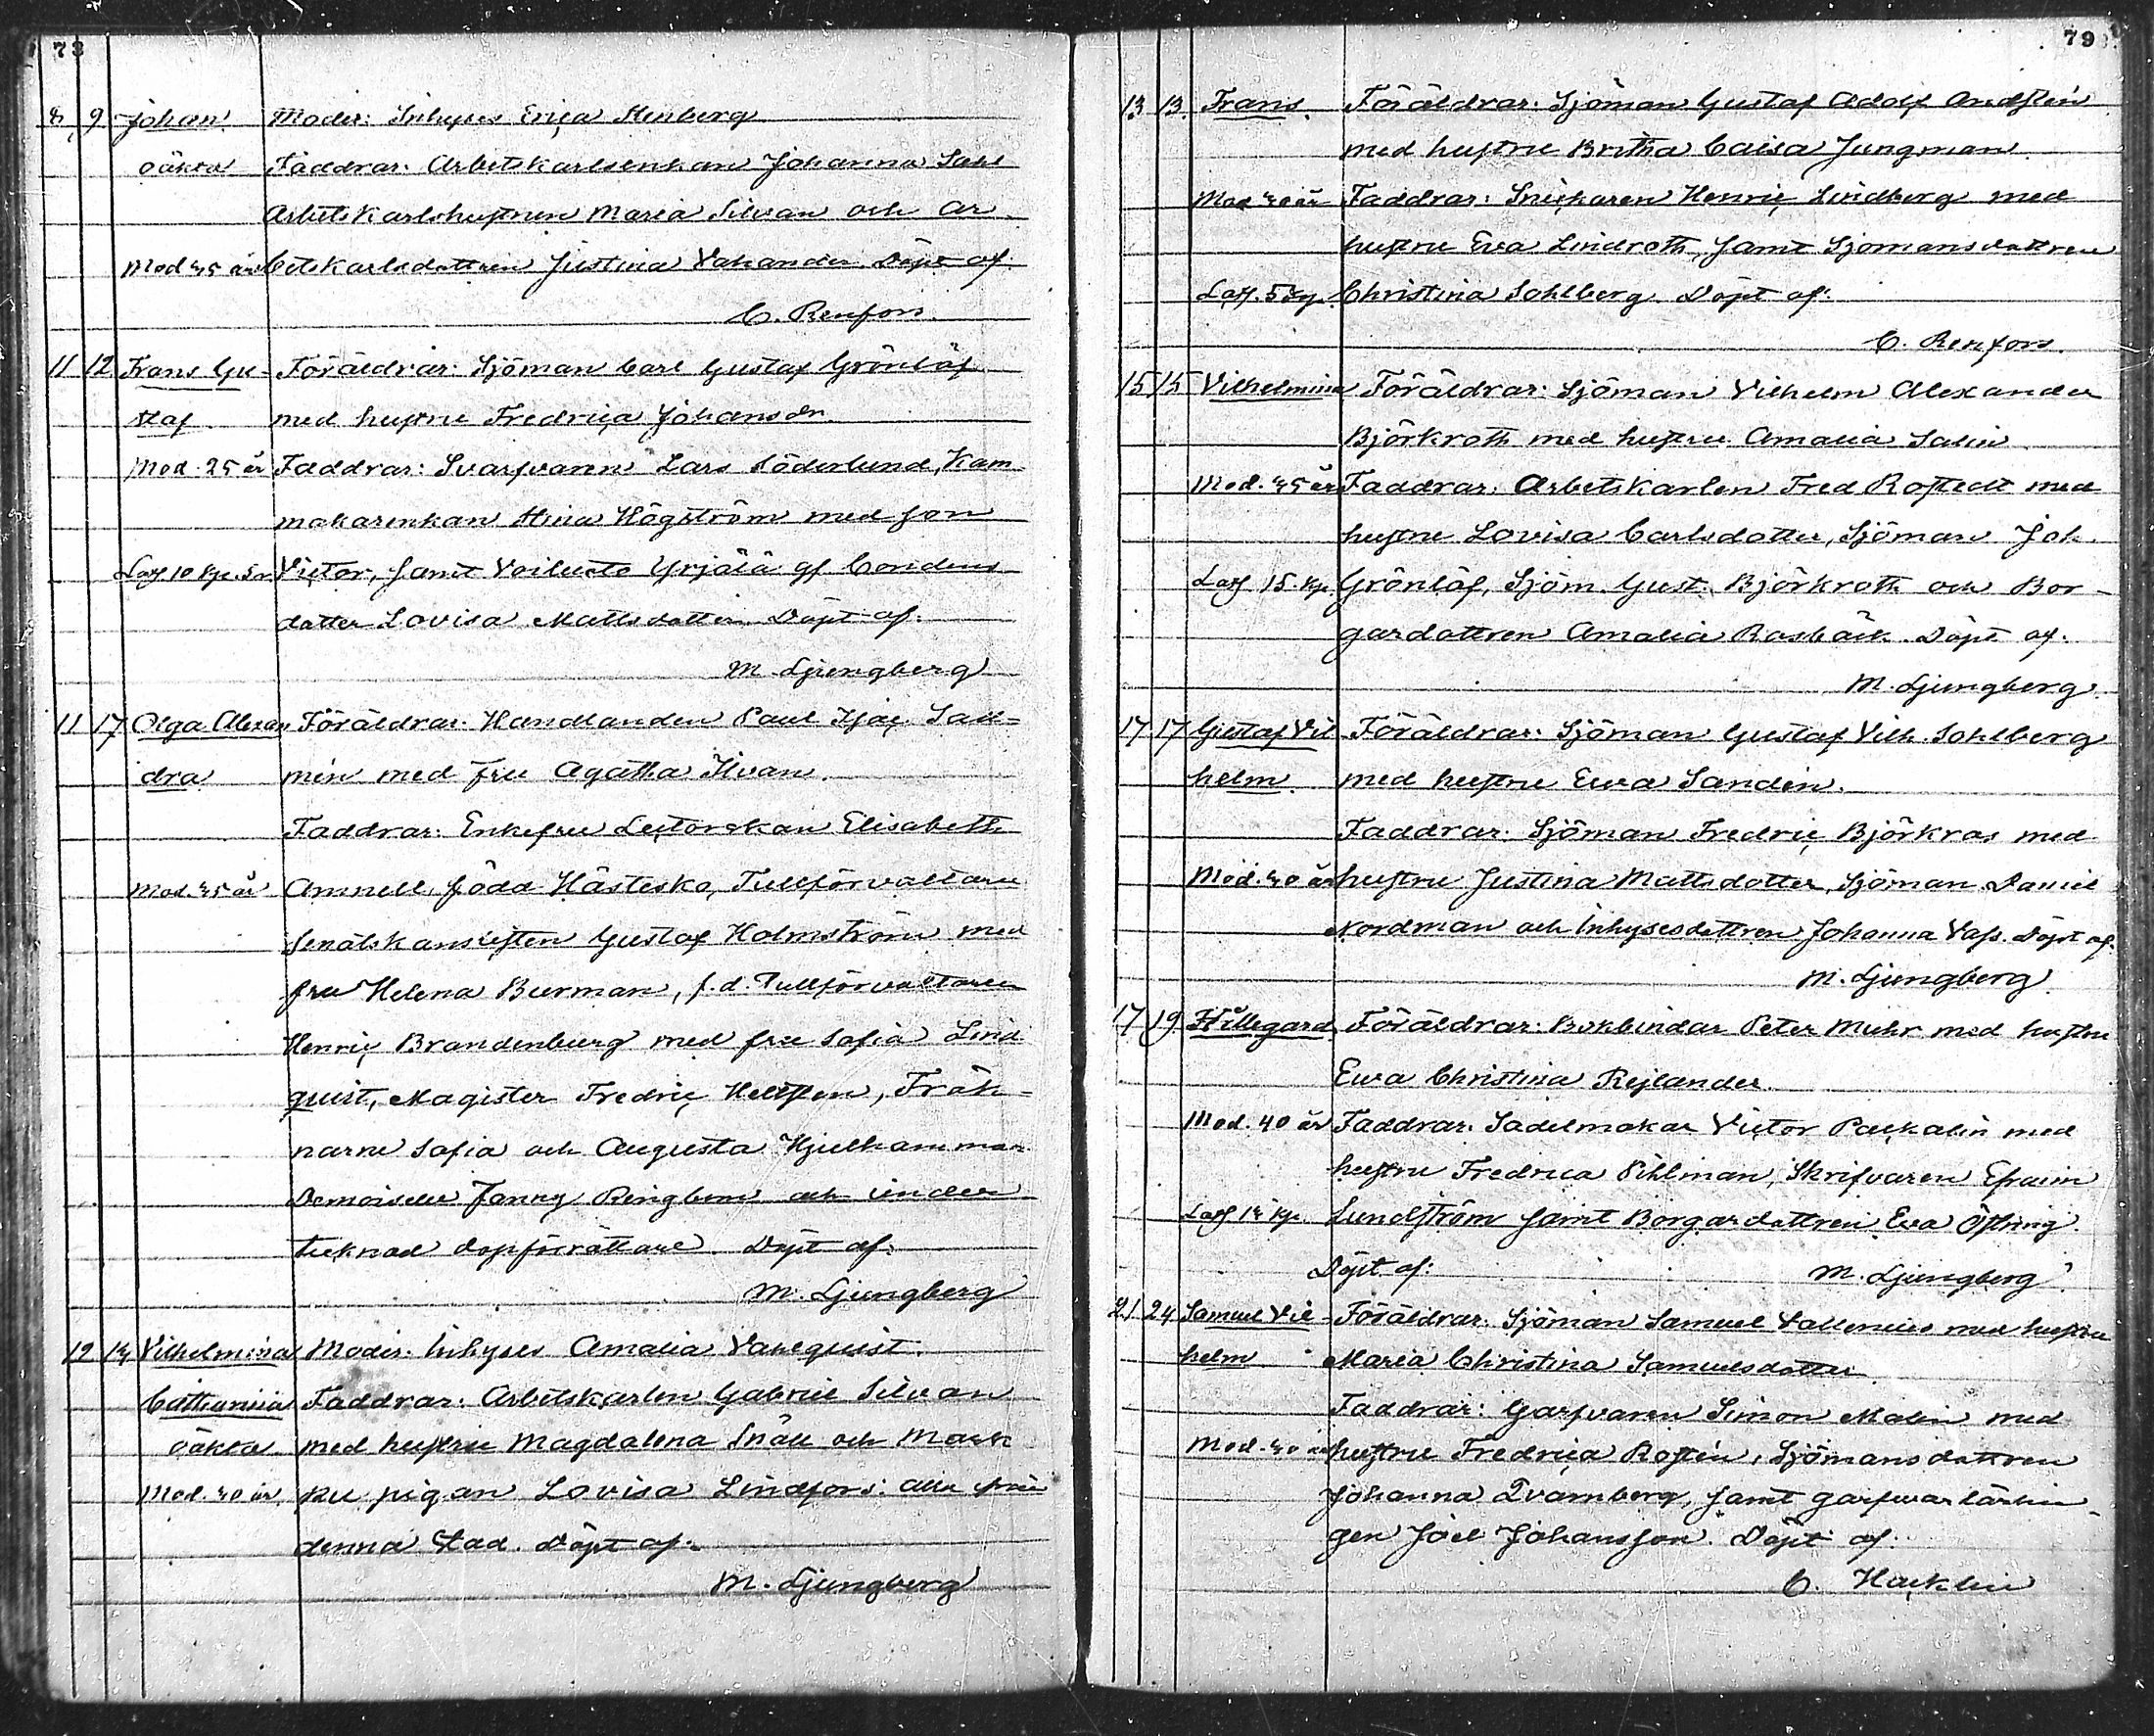 78
8 9 Johan Moder: Inhyses Erica Stenberg
oäkta Faddrar: Arbetskarlsenkan Johanna Sahl
Arbetskarlshustrun Maria Silvan och Ar
Mod 45 år betskarlsdottren Justina Vahander. Döpt af
C. Renfors.
11 12 Frans Gu- Föräldrar: Sjöman Carl Gustaf Grönlöf
staf. med hustru Fredrica Johansdr
Mod. 25 år Faddrar: Svarfvaren Lars Söderlund, Kam
makarenkan Stina Högström med son
Lösf 10 kp. Victor, samt Yrjälä
dotter Lovisa Mattsdotter. Döpt af.
M. Ljungberg
11 17 Olga Alexan Föräldrar: Handlanden Paul Isac Sall=
dra men med fru Agatha Ilvan.
Faddrar: Enkefru Lectorskan Elisabeth
Mod. 45 år Amnell, född Hästesko, Tullförvaltaren
Gustaf Holmström med
fru Helena Burman, f.d. Tullförvaltaren
Henric Brandenburg med fru Sofia Lind
quist, Magister Fredric Hellsten, Frök-
narne Sofia och Augusta Hjulhammar
Demoiselle Fanny Ringbom och under
tecknad dopförrättare. Döpt af:
M. Ljungberg
12 14 Vilhelmina Moder: Inhyses Amalia Vanquist.
Catharina Faddrar: Arbetskarlen Gabriel Silvan
oäkta med hustru Magdalena Snäll och Mark
Mod. 40 år ku pigan Lovisa Lindfors: alla från
denna stad. Döpt af.
M. Ljungberg
79
13 13 Frans. Föräldrar: Sjöman Gustaf Adolf Andsten
med hustru Britha Caisa Jungman.
Mod 40 år Faddrar: Snickaren Henric Lindberg med
hustru Eva Lindroth, samt Sjömansdottren
Lösf. 5 kp. Christina Sohlberg. Döpt af:
C. Renfors.
15 15 Vilhelmina Föräldrar: Sjöman Vilhelm Alexander
Björkroth med hustru Amalia Salin
Mod. 45 år Faddrar: Arbetskarlen Fred Rostedt med
hustru Lovisa Carlsdotter, Sjöman Joh.
Lösf 15. kp. Grönlöf, Sjöm. Gust. Björkroth och Bor-
gardottren Amalia Rosbäck. Döpt af.
M. Ljungberg.
17 17 Gustaf Vil Föräldrar: Sjöman Gustaf Vilh. Sohlberg
helm. med hustru Ewa Sanden.
Faddrar: Sjöman Fredric Björkros med
Mod. 40 år hustru Justina Mattsdotter, Sjöman Daniel
Nordman och Inhysesdottren Johanna Vass. Döpt af.
M. Ljungberg
17 19 Hillegard. Föräldrar: Bokbindar Peter Muhr med hustru
Ewa Christina Rejlander.
Mod. 40 år Faddrar: Sadelmakar Victor Packalin med
hustru Fredrica Pihlman, Skrifvaren Efraim
Lösf 14 kp. Lundström samt Borgardottren Eva Östring.
Döpt af: M. Ljungberg
21 24 Samuel Vil- Föräldrar: Sjöman Samuel Vallenius med hustru
helm Maria Christina Samuelsdotter
Faddrar: Garfvaren Simon Malin med
Mod. 40 år hustru Fredrica Rosten, Sjömansdottren
Johanna Qvarnberg, samt garfvarlärlin-
gen Joel Johansson. Döpt af.
C. Hacklin